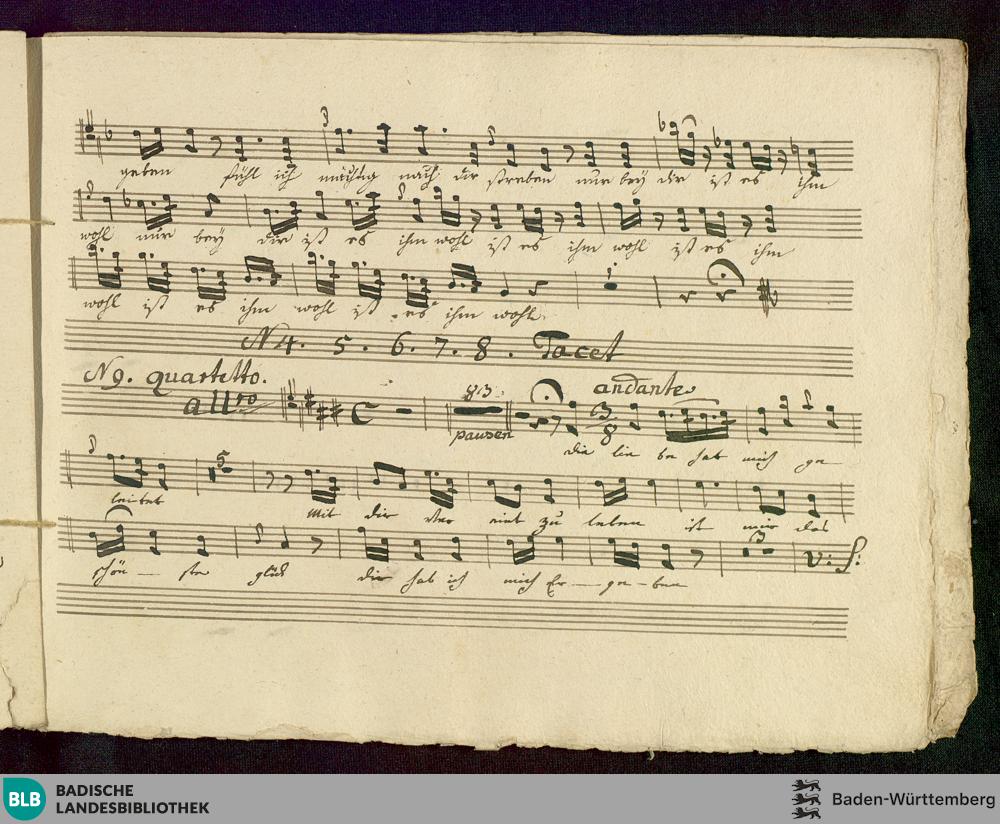 geben fühl ich mächtig nach dir streben nur bey dir ist es ihm
wohl nur bey dir ist es ihm wohl ist es ihm wohl ist es ihm
wohl ist es ihm wohl ist es ihm wohl.
N 4. 5. 6. 7. 8. Tacet
N 9. quartetto.
allro 83 pausen andante 3/8
die lie be hat mich ge
5
leitet Mit dir ver eint zu leben ist mir das
3 V: S:
schön - ste glück dir hab ich mich Er - ge - ben
BLB BADISCHE LANDESBIBLIOTHEK
Baden-Württemberg